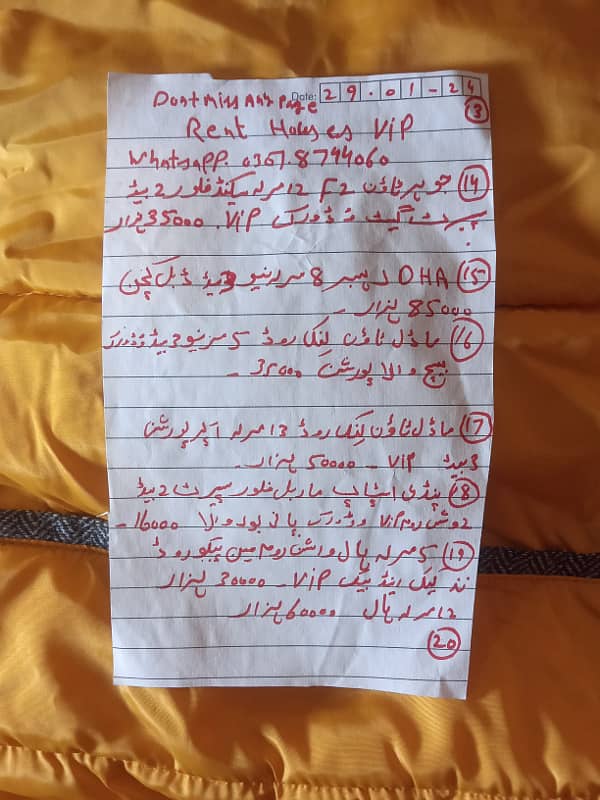 Date: 29-01-24
Dont Miss Any Page
③
Rent Houses ViP
WhatsAPP. 0307.8744060
⑭ جوہر ٹاؤن F2 12 مرلہ سیکنڈ فلور 2 بیڈ
گیٹ وڈورک ViP. 35000 ہزار
⑮ DHA رہبر 8 مرلہ نیو 3 بیڈ ڈبل کچن
85000 ہزار -
⑯ ماڈل ٹاؤن لنک روڈ 5 مرلہ نیو 2 بیڈ وڈورک
بیچ والا پورشن 35000 -
⑰ ماڈل ٹاؤن لنک روڈ 13 مرلہ اپر پورشن
3 بیڈ ViP - 50000 ہزار -
⑱ پنڈی اسٹاپ ماربل فلور سپرٹ 2 بیڈ
2 واش روم ViP وڈورک پانی بور والا 16000 -
⑲ 5 مرلہ ہال واشن روم مین پیکو روڈ
نذد کیک اینڈ بیک ViP - 30000 ہزار
12 مرلہ ہال 60000 ہزار
⑳